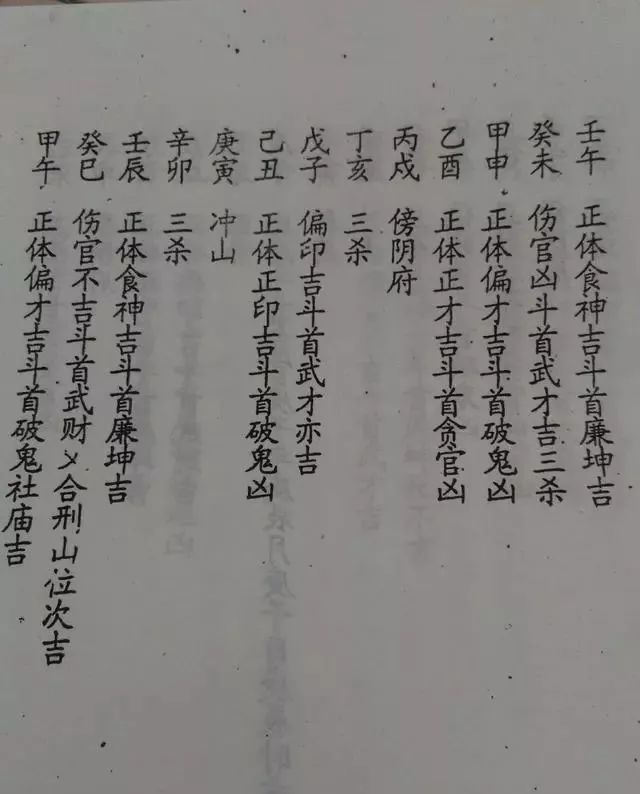 壬午 正体食神吉斗首廉坤吉
癸未 伤官凶斗首武才吉三杀
甲申 正体偏才吉斗首破鬼凶
乙酉 正体正才吉斗首贪官凶
丙戌 傍阴府
丁亥 三杀
戊子 偏印吉斗首武才亦吉
己丑 正体正印吉斗首破鬼凶
庚寅 冲山
辛卯 三杀
壬辰 正体食神吉斗首廉坤吉
癸巳 伤官不吉斗首武财㐅合刑山位次吉
甲午 正体偏才吉斗首破鬼社庙吉